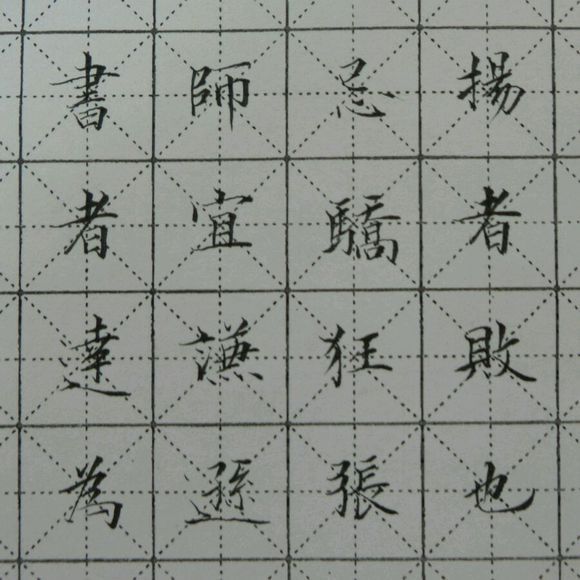 書者達為
師宜謙遜
忌驕狂張
揚者敗也